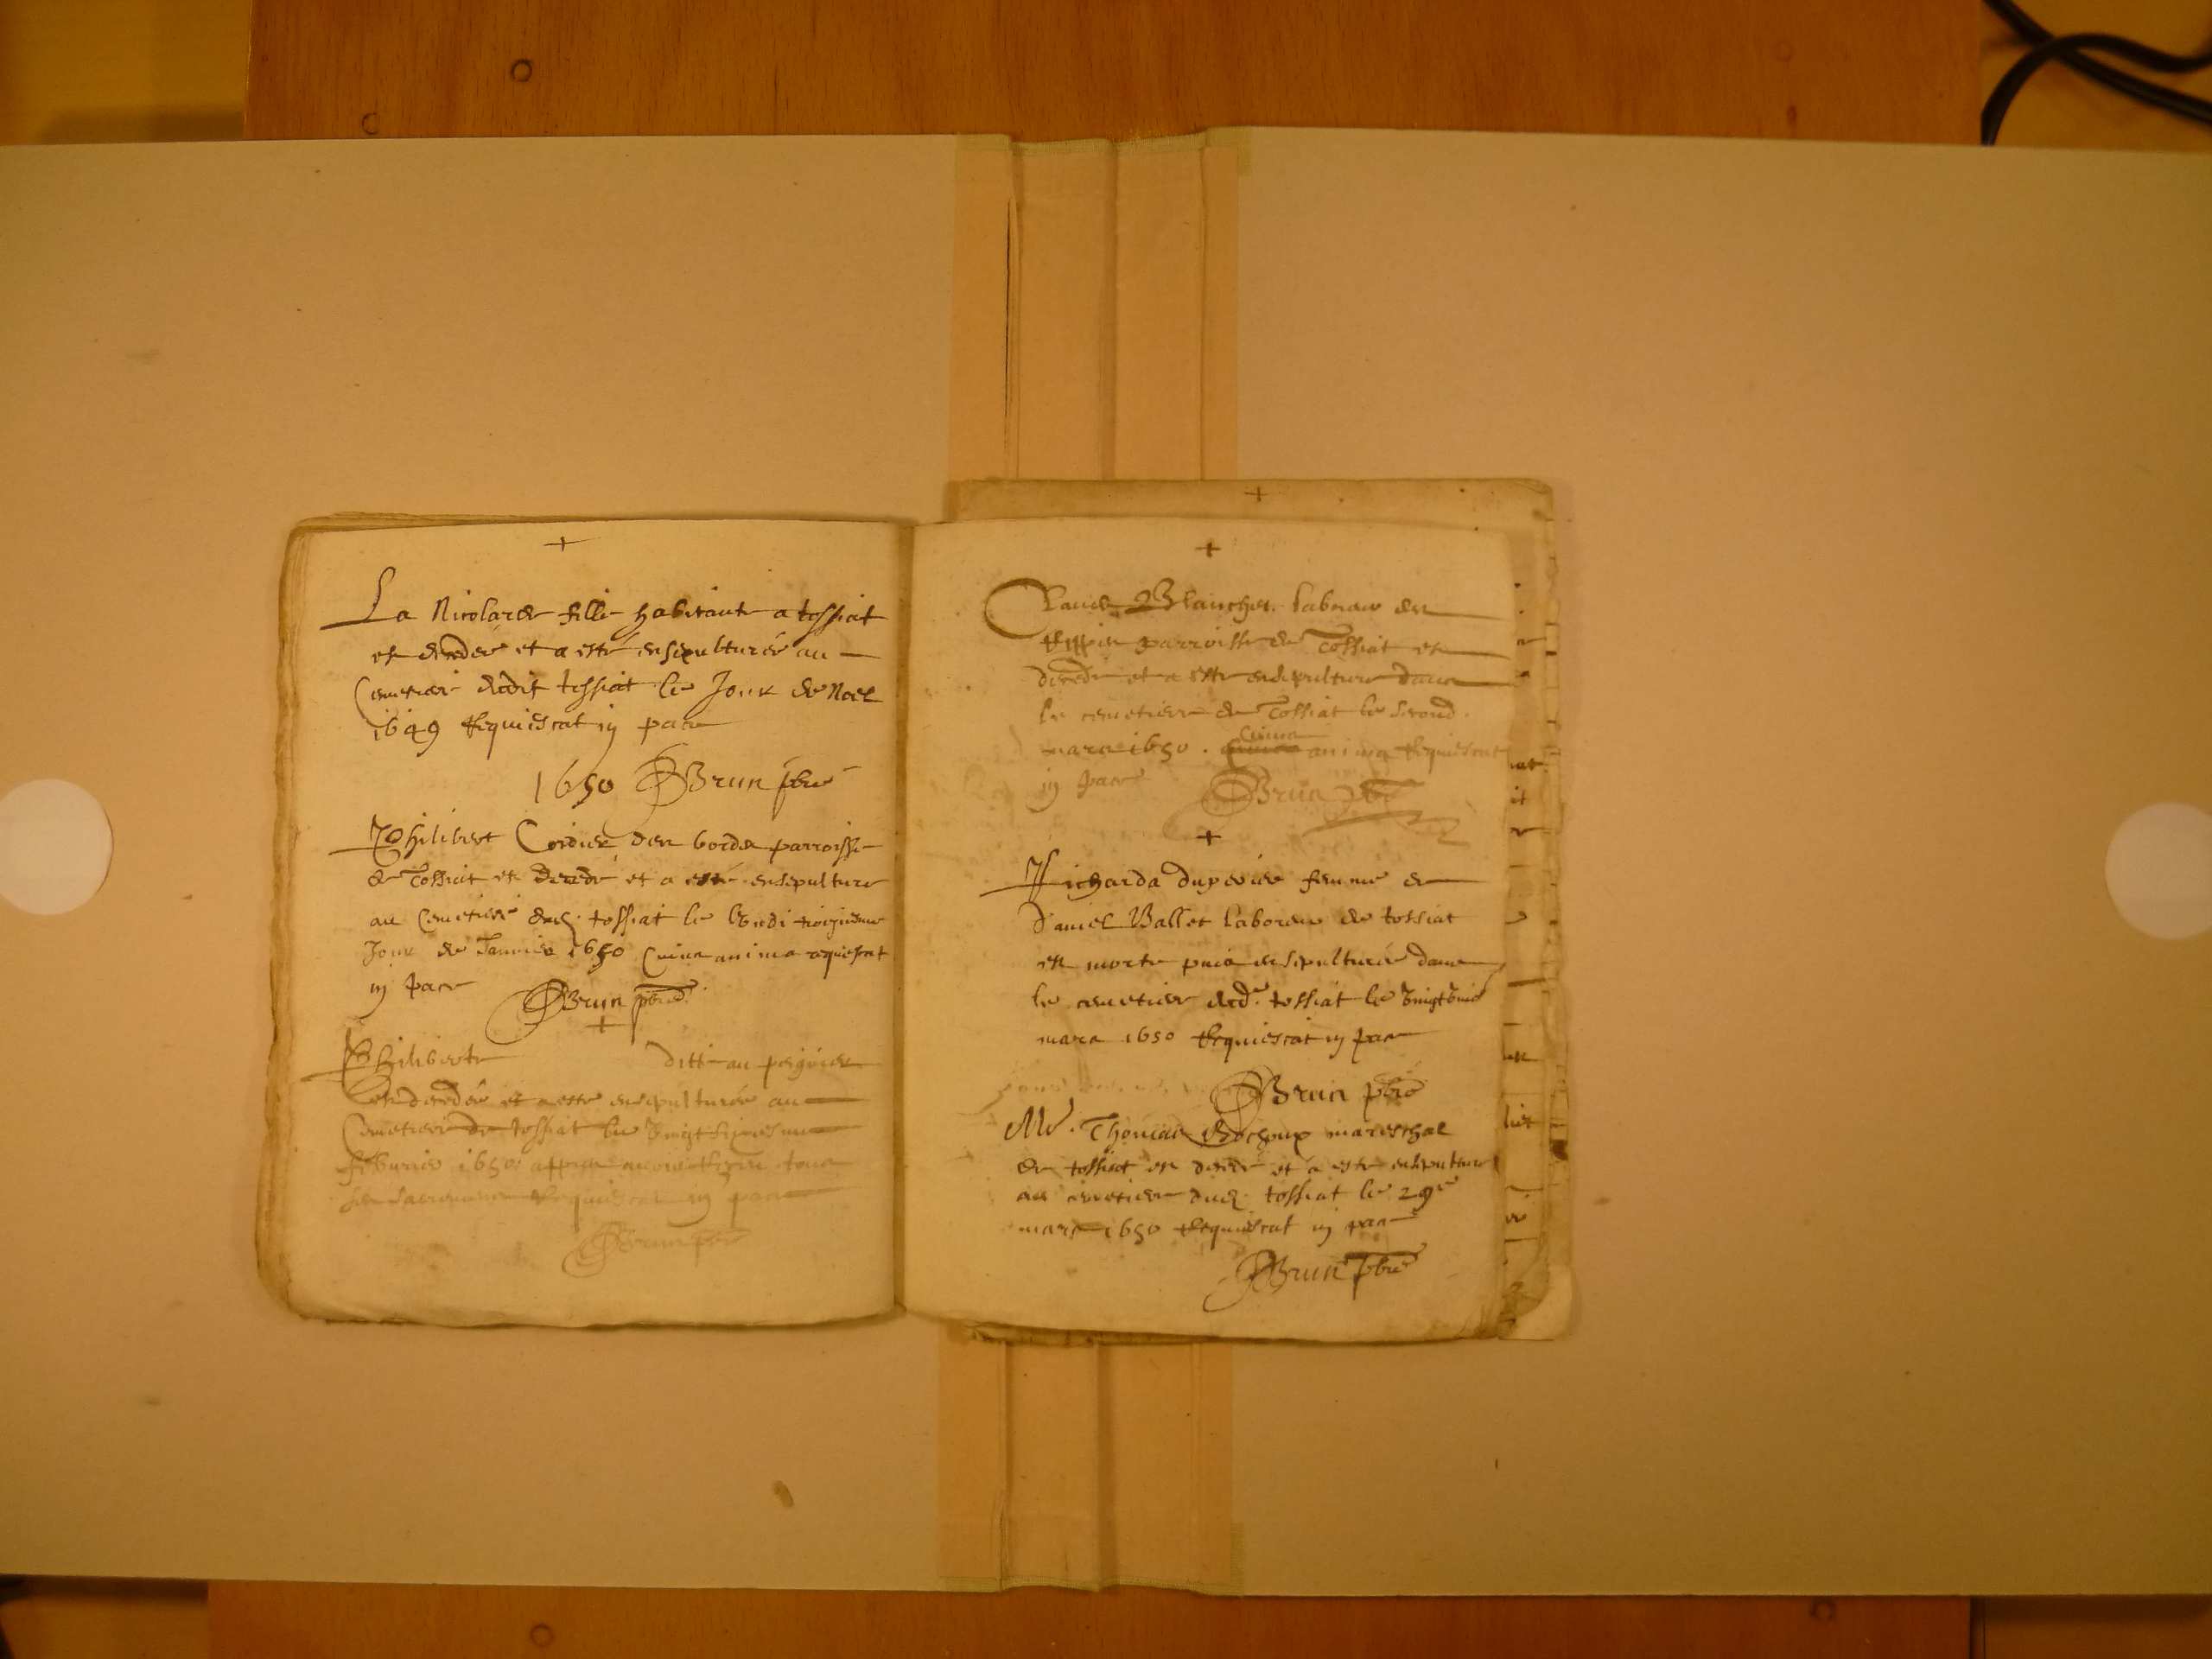 +
La Nicolarde fille habitante a tossiat
est decedée et a esté ensepulturée au
Cemetier dudit tossiat le Jour de Noel
1649 Requiescat in pace
1650 Brun pbre
Philibert Cordier des bordes parroisse
de Tossiat est decedé et a esté ensepulturé
au Cemetier dud. tossiat le
Jour de Janvier 1650 Cuius anima requiescat
in pace
Brun pbre
+
Philiberte ditte au
est decedée et a esté ensepulturée au
Cemetier de tossiat le vingt sixiesme
feburier 1650 appres avoir tous
les sacremens Requiescat in pace
Brun pbre
+
Claude Blanchet laboureur de
parroisse de Tossiat est
decedé et a esté ensepulturé dans
le cemetiere de Tossiat le second
mars 1650. Cuius anima Requiescat
in pace Brun pbre
+
Richarda duperier femme de
Daniel Ballet laboreur de tossiat
est morte puis ensepulturée dans
le cemetier dud. tossiat le
mars 1650 Requiescat in pace
Brun pbre
Me. Thomas mareschal
de tossiat est decedé et a esté ensepulturé
au cemetier dud. tossiat le 29e
mars 1650 Requiescat in pace
Brun pbre